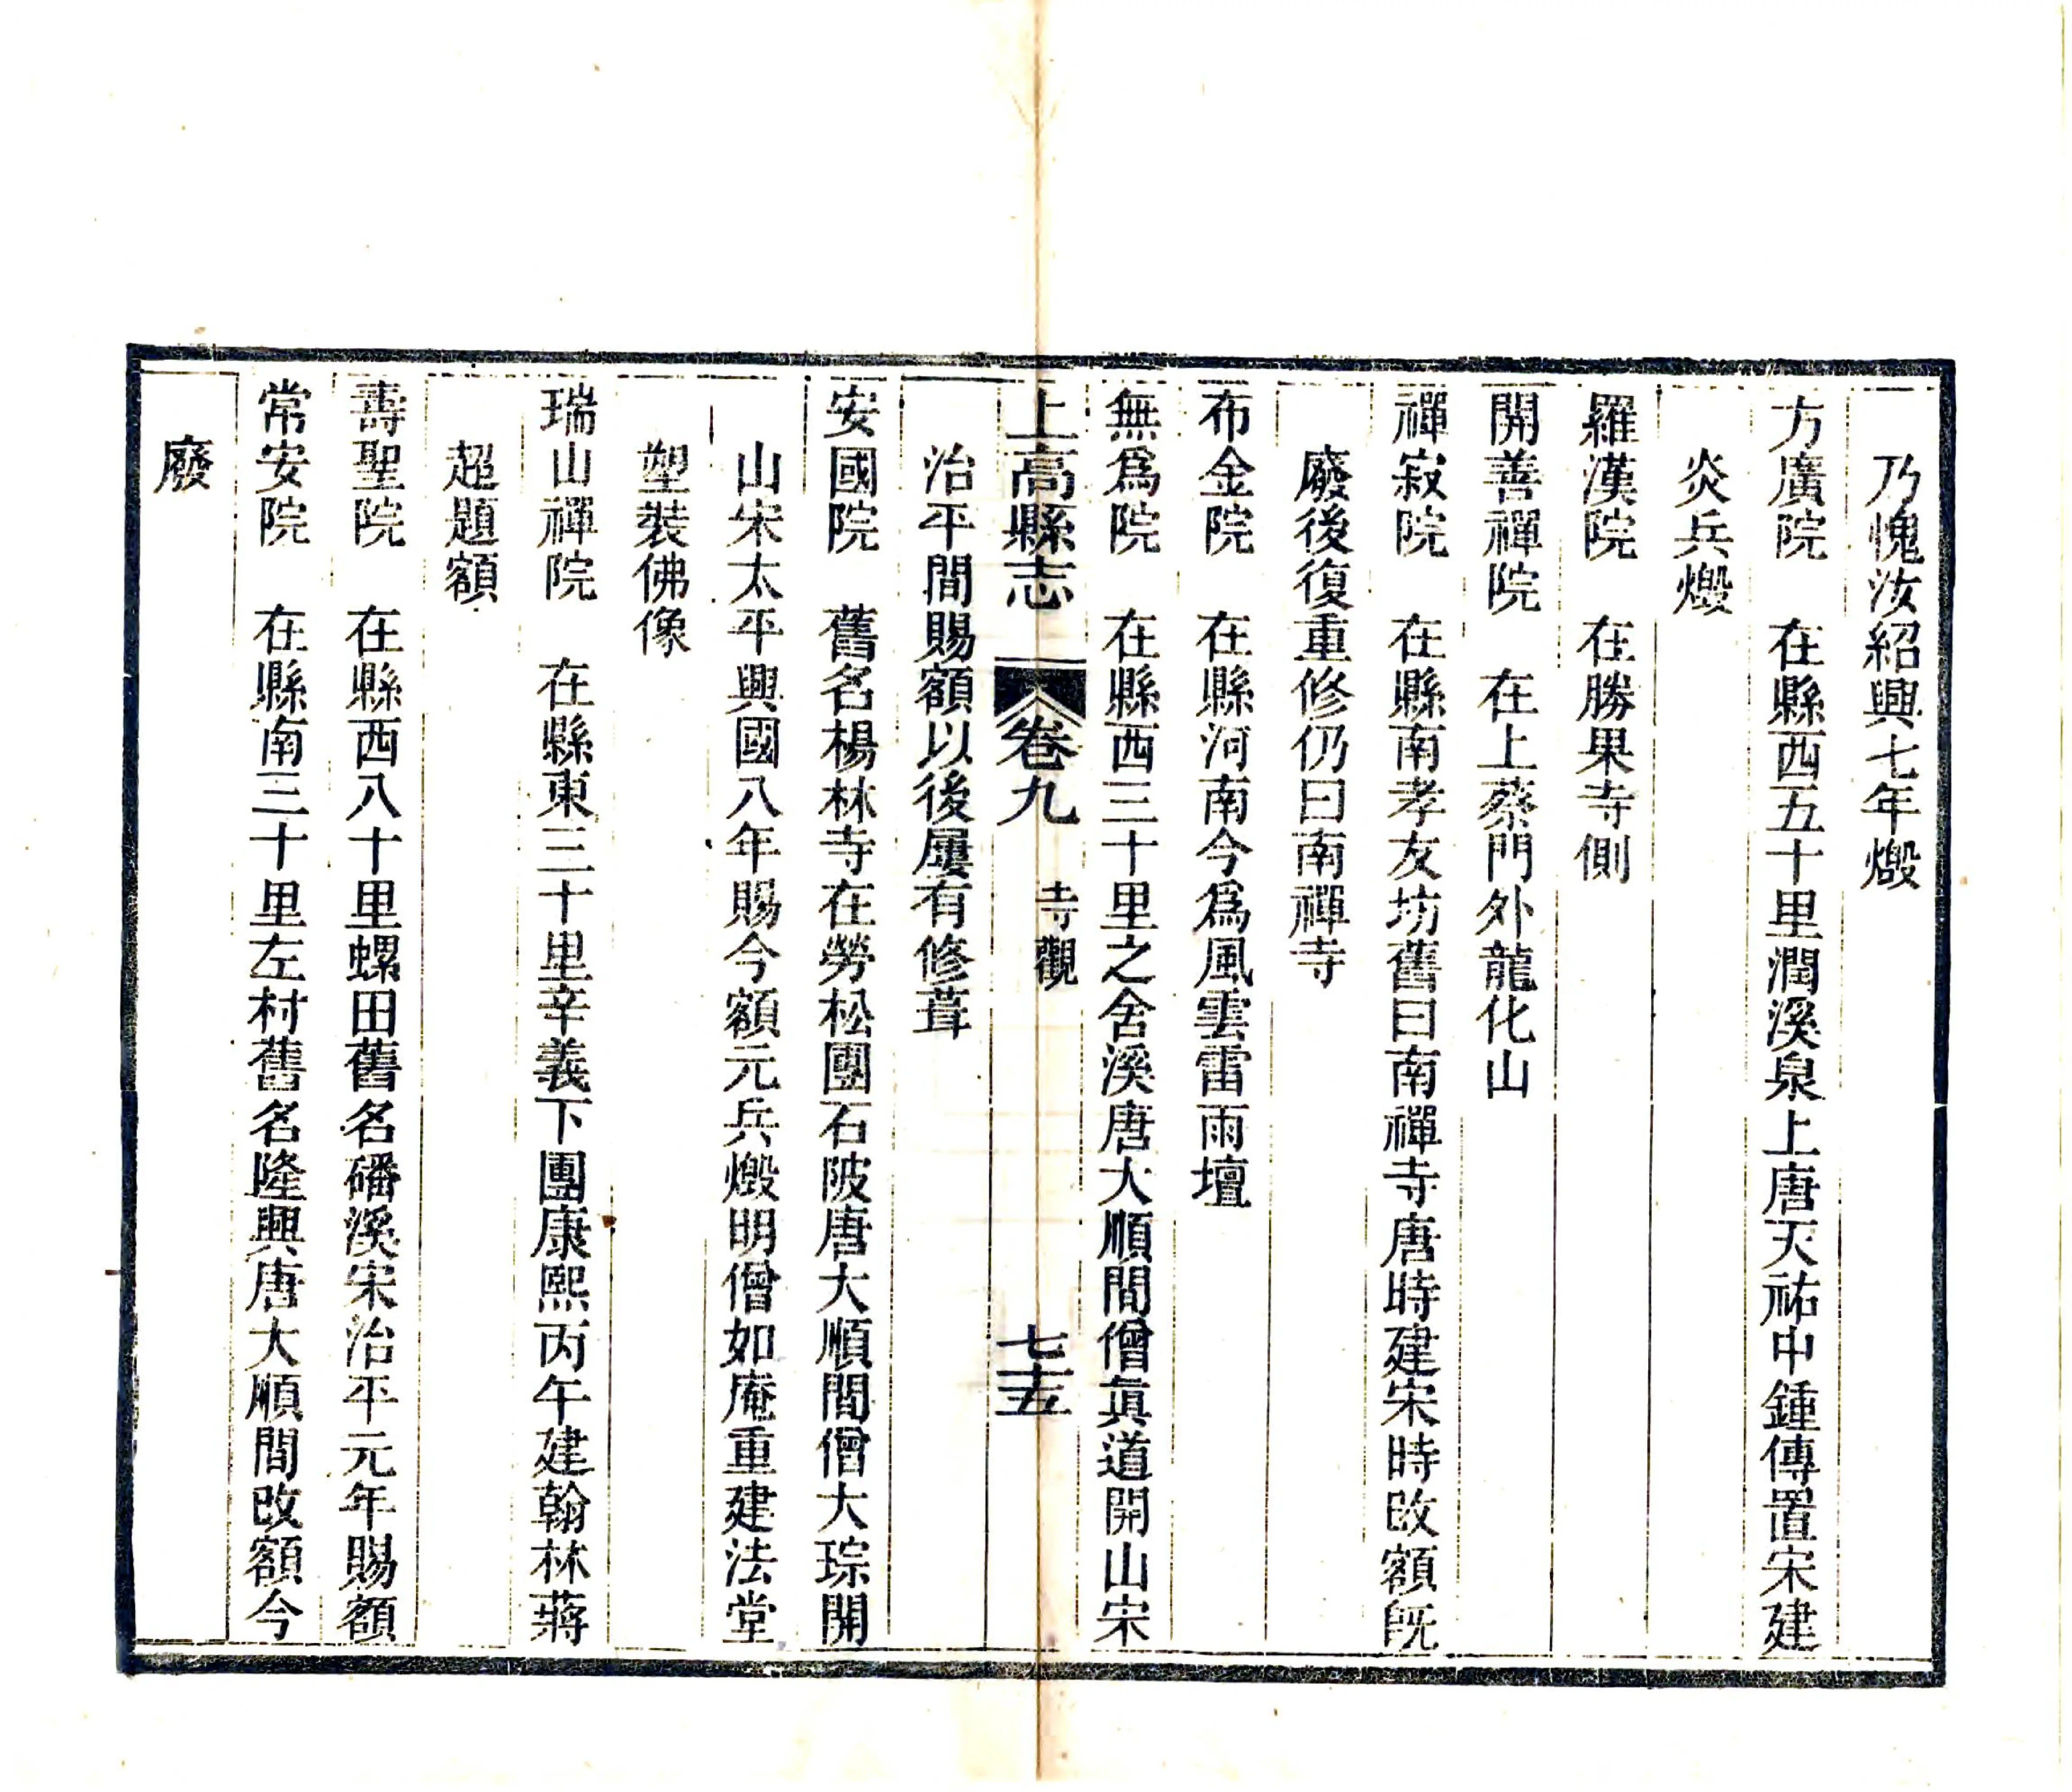 乃愧汝紹興七年燬
方廣院　在縣西五十里潤溪泉上唐天祐中鍾傳置宋建
炎兵燬
羅漢院　在勝果寺側
開善禪院　在上蔡門外龍化山
禪寂院　在縣南孝友坊舊曰南禪寺唐時建宋時改額旣
廢後復重修仍曰南禪寺
布金院　在縣河南今爲風雲雷雨壇
無爲院　在縣西三十里之舍溪唐大順間僧眞道開山宋
上高縣志　卷九　寺觀　七十五
治平間賜額以後屢有修葺
安國院　舊名楊林寺在勞松團石陂唐大順間僧大琮開
山宋太平興國八年賜今額元兵燬明僧如庵重建法堂
塑裝佛像
瑞山禪院　在縣東三十里辛義下團康熙丙午建翰林蔣
超題額
壽聖院　在縣西八十里螺田舊名磻溪宋治平元年賜額
常安院　在縣南三十里左村舊名隆興唐大順間改額今
廢